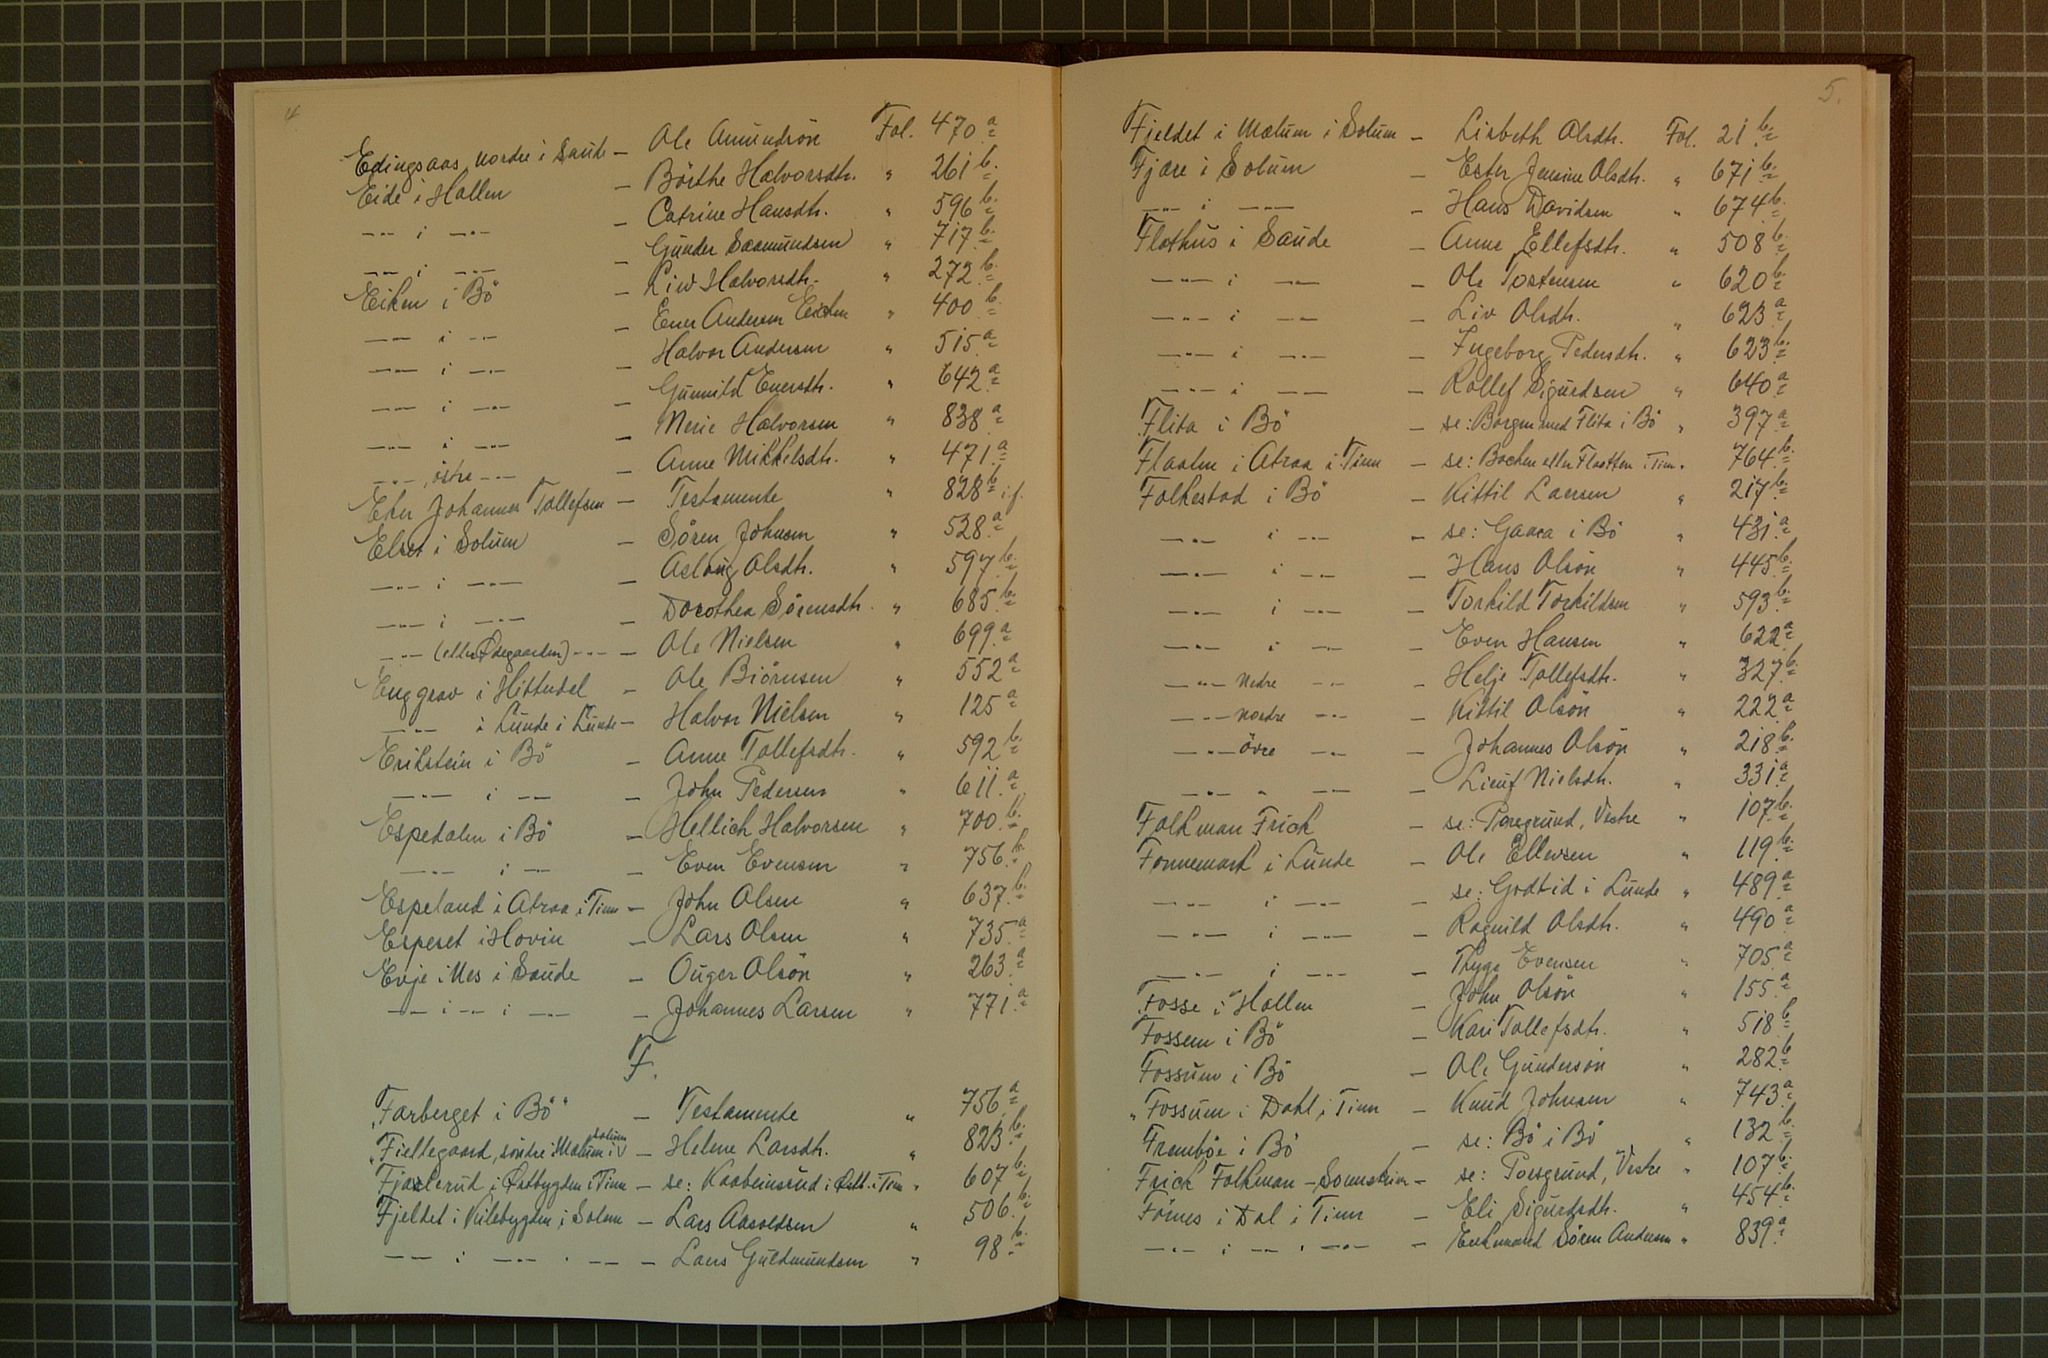 4.
Edingsaas, nordre i Saude — Ole Amundsön Fol. 470 a
Eide i Hollen — Börthe Halvorsdtr. " 261 b.
—..— i —..— — Catrine Hansdtr. " 596 b.
—..— i —..— — Gunder Saamundsen " 717 b.
Eiken i Bö — Liw Halvorsdtr. " 272 b.
—..— i —..— — Ener Andersen Eichen " 400 b.
—..— i —..— — Halvor Andersen " 515 a
—..— i —..— — Gunnild Enersdtr. " 642 a
—..— i —..— — Nerie Halvorsen " 838 a
—..—, östre —..— — Anne Mikkelsdtr. " 471 a
Eker Johannes Tollefsen — Testamente " 828 b i f.
Elset i Solum — Sören Johnsen " 528 a
—..— i —..— — Aslaug Olsdtr. " 597 b.
—..— i —..— — Dorothea Sörensdtr. " 685 b.
—..— (eller Ödegaarden) —..— — Ole Nielsen " 699 a
Enggrav i Hitterdal — Ole Biörnsen " 552 a
—..— i Lunde i Lunde — Halvor Nielsen " 125 a
Erikstein i Bö — Anne Tollefsdtr. " 592 b.
—..— i —..— — John Pedersen " 611 a
Espedalen i Bö — Hellich Halvorsen " 700 b.
—..— i —..— — Even Evensen " 756 b.
Espeland i Atraa i Tinn — John Olsen " 637 b.
Esperet i Hovin — Lars Olsen " 735 a
Evje i Nes i Saude — Ouger Olsön " 263 a
—..— i —..— i —..— — Johannes Larsen " 771 a
F.
"Farberget i Bö" — Testamente " 756 a
"Fieltegaard, söndre i Mælum i Solum — Helene Larsdtr. " 823 b.
Fjoslerud i Østbygden i Tinn — se: Kaabeinsrud i Östb. i Tinn " 607 b.
Fjeldet i Kilebygden i Solum — Lars Aasoldsen " 506 b.
—..— i —..— i —..— — Lars Guldmundsen " 98 b.
5.
Fjeldet i Mælum i Solum — Lisbeth Olsdtr. Fol. 21 b.
Fjære i Solum — Ester Jensine Olsdtr. " 671 b.
—..— i —..— — Hans Davidsen " 674 b.
Flothus i Saude — Anne Ellefsdtr. " 508 b.
—..— i —..— — Ole Tostensen " 620 b.
—..— i —..— — Liv Olsdtr. " 623 a
—..— i —..— — Ingeborg Pedersdtr. " 623 b.
—..— i —..— — Rollef Sigurdsen " 640 a
Flita i Bö — se: Borgen med Flita i Bö " 397 a
Flaaten i Atraa i Tinn — se: Bochen eller Flaatten i Tinn " 764 b.
Folkestad i Bö — Kittil Larsen " 217 b.
—..— i —..— — se: Gaara i Bö " 431 a
—..— i —..— — Hans Olsön " 445 b.
—..— i —..— — Torkild Torkildsen " 593 b.
—..— i —..— — Even Hansen " 622 a
—..— Nedre —..— — Helje Tollefsdtr. " 327 b.
—..— Nordre —..— — Kittil Olsön " 222 a
—..— övre —..— — Johannes Olsön " 218 b.
—..— " —..— — Nielsdtr. " 331 a
Folkman Frich — se: Porsgrund, Vestre " 107 b.
Fonnemark i Lunde — Ole Ellevsen " 119 b.
—..— i —..— — se: Godtid i Lunde " 489 a
—..— i —..— — Ragnild Olsdtr. " 490 a
—..— i —..— — Thyge Evensen " 705 a
Fosse i Hollen — John Olsön " 155 a
Fossem i Bö — Kari Tollefsdtr. " 518 b
Fossum i Bö — Ole Gundersön " 282 b
"Fossum i Dahl i Tinn — Knud Johnsen " 743 a
Fremböe i Bö — se: Bö i Bö " 132 b.
Frich Folkman - — se: Porsgrund, Vestre " 107 b.
Förnes i Dal i Tinn — Eli Sigurdsdtr. " 454 b.
—..— i —..— i —..— — Sören Andersen " 839 a